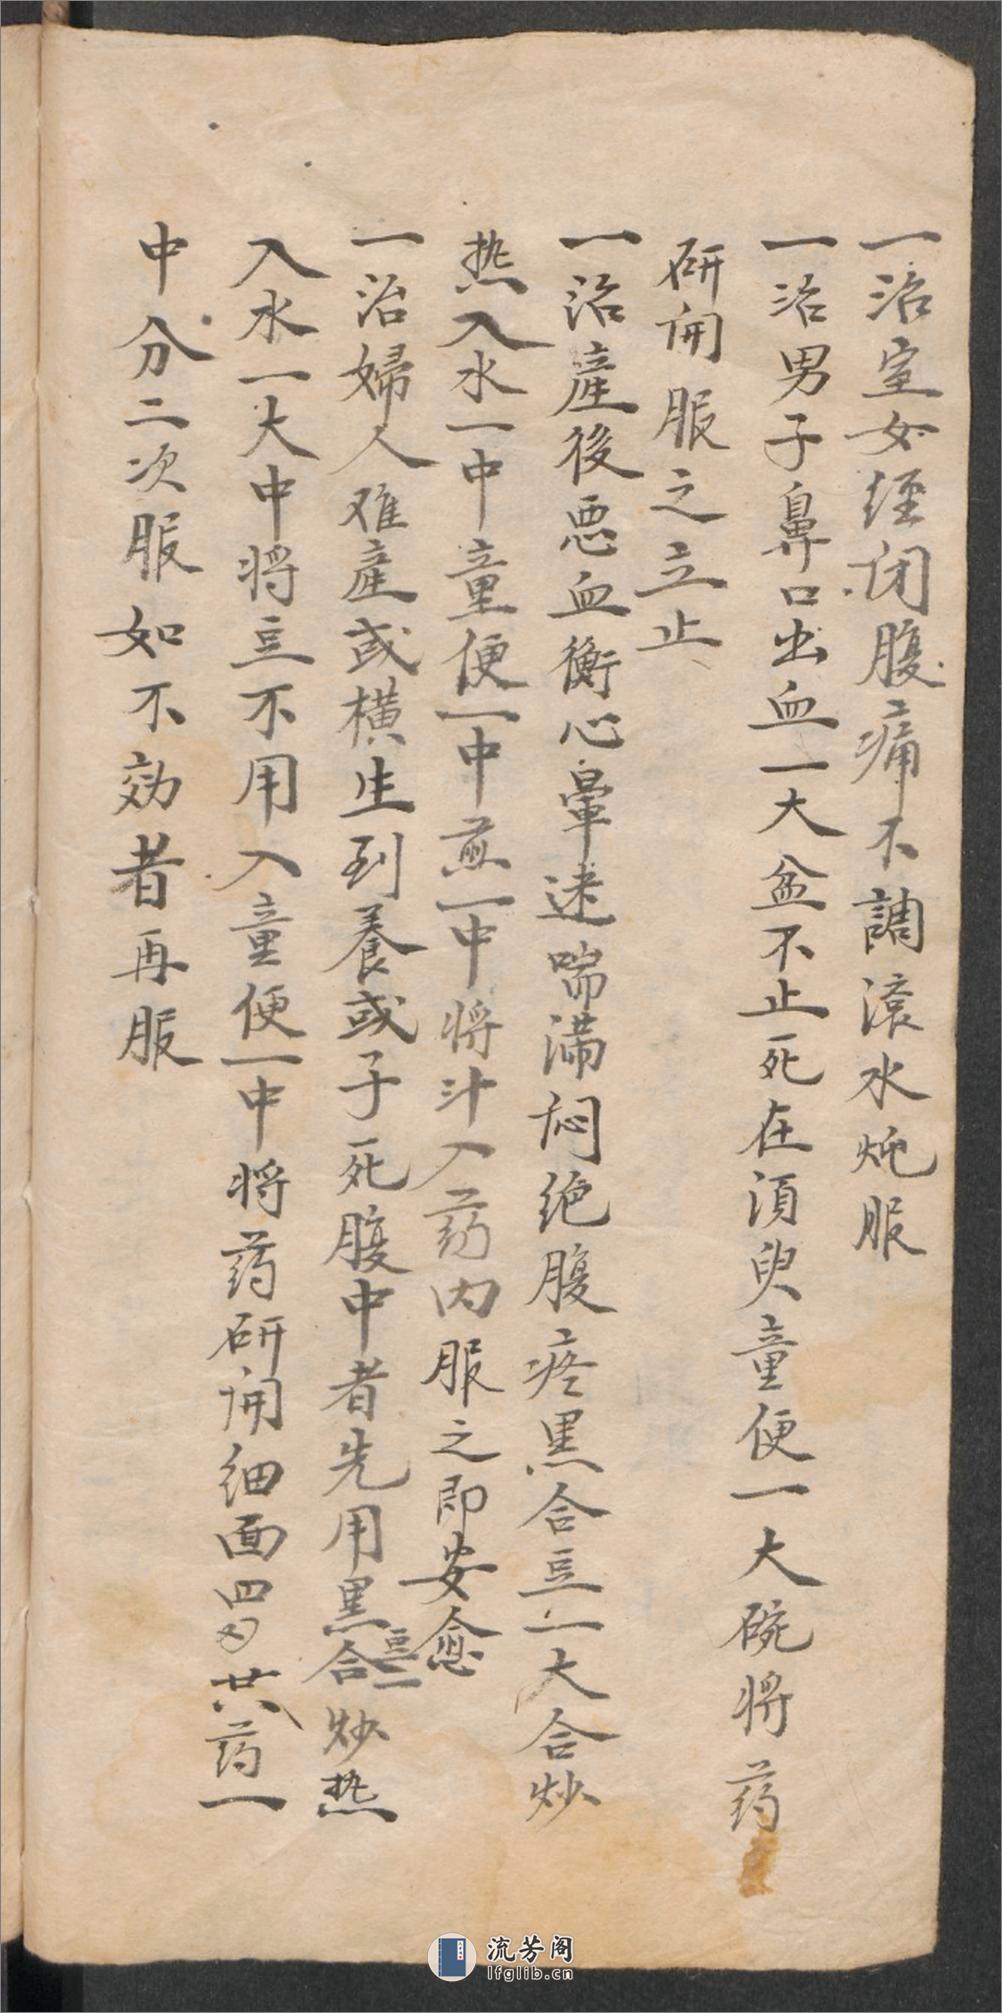 一治室女经闭腹痛不調滚水炖服
一治男子鼻口出血一大盆不止死在須臾童便一大碗将药
研開服之立止
一治產後悪血衡心暈迷喘满闷绝腹疼黑合豆一大合炒
热入水一中童便一中煎一中将汁入药内服之即安愈
一治婦人难產或横生到養或子死腹中者先用黑合豆一炒热
入水一大中将豆不用入童便一中将药研開细面四匁共药一
中分二次服如不効者再服
流芳阁
lfglib.cn